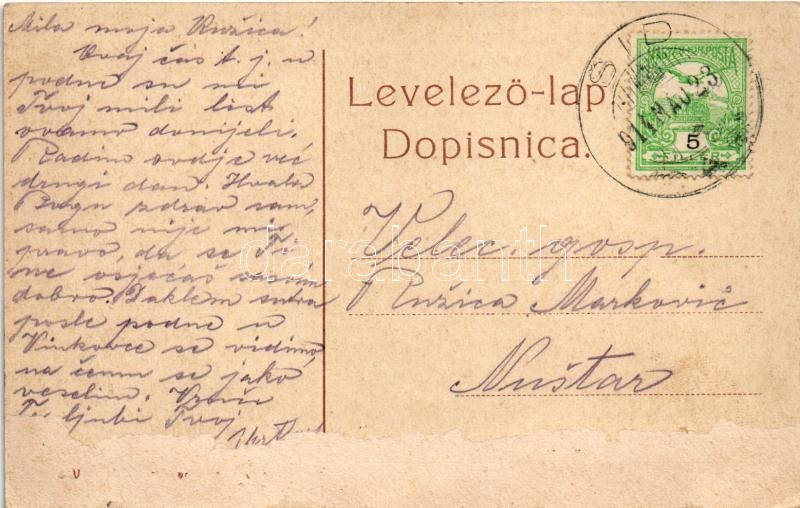 Mila moja Ružica!
Ovaj čas t. j. u
podne su mi
Tvoj mili list
ovamo donijeli.
Radim ovdje već
drugi dan. Hvala
Bogu zdrav sam,
samo nije mi
pravo, da se Ti
ne osjećaš sasvim
dobro. Daklem sutra
posle podne u
Vinkovce se vidimo,
na čemu se jako
veselim. Vruće
Te ljubi Tvoj
Levelező-lap
Dopisnica.
ŠID
914 MAJ 23
MAGYAR KIR. POSTA
5
FILLÉR
Velec. gosp.
Ružica Marković
Nuštar
darabanth